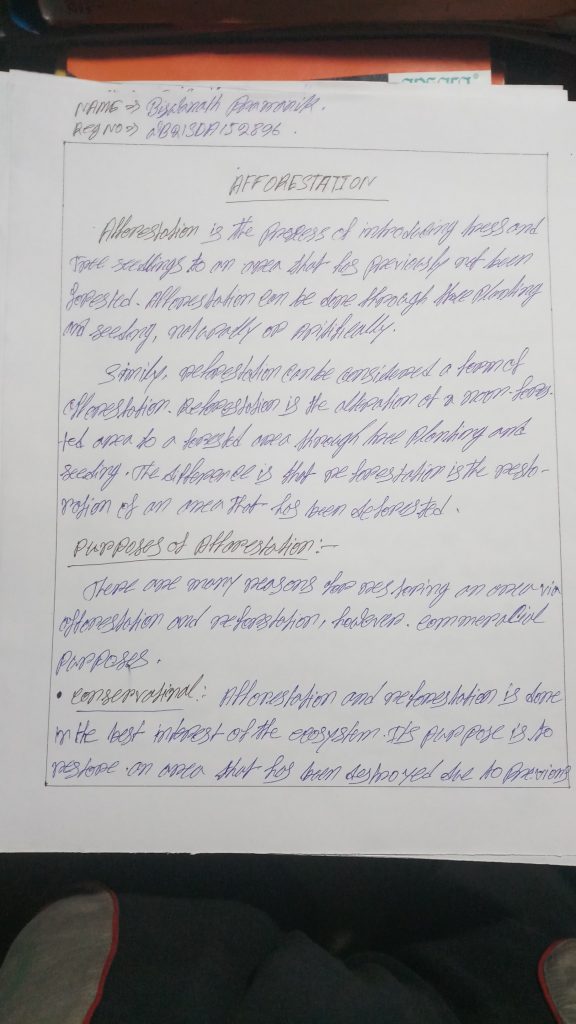 NAME ⇒ Pramanik.
Reg NO ⇒
AFFORESTATION
Afforestation is the process of introducing tress and
tree seedlings to an area that has previously not been
forested. Afforestation can be done through tree planting
and seeding, naturally or
reforestation can be considered a form of
afforestation. Reforestation is the alteration of a non-fores-
ted area to a forested area through tree planting and
seeding. The difference is that reforestation is the resto-
ration of an area that has been deforested.
Purposes of Afforestation:-
There are many reasons for restoring an area via
afforestation and reforestation, however.
purposes.
• Conservational: Afforestation and reforestation is done
in the best interest of the ecosystem. Its purpose is to
restore an area that has been destroyed due to previous